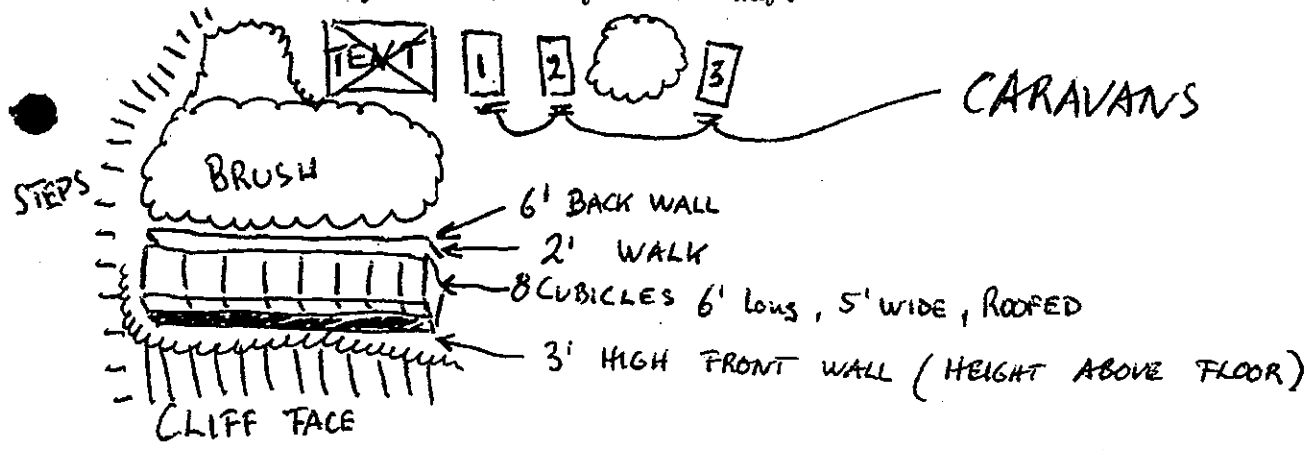 TENT
1
2
3
CARAVANS
BRUSH
STEPS
6' BACK WALL
2' WALK
8 CUBICLES 6' Long, 5' WIDE, ROOFED
3' HIGH FRONT WALL (HEIGHT ABOVE FLOOR)
CLIFF FACE